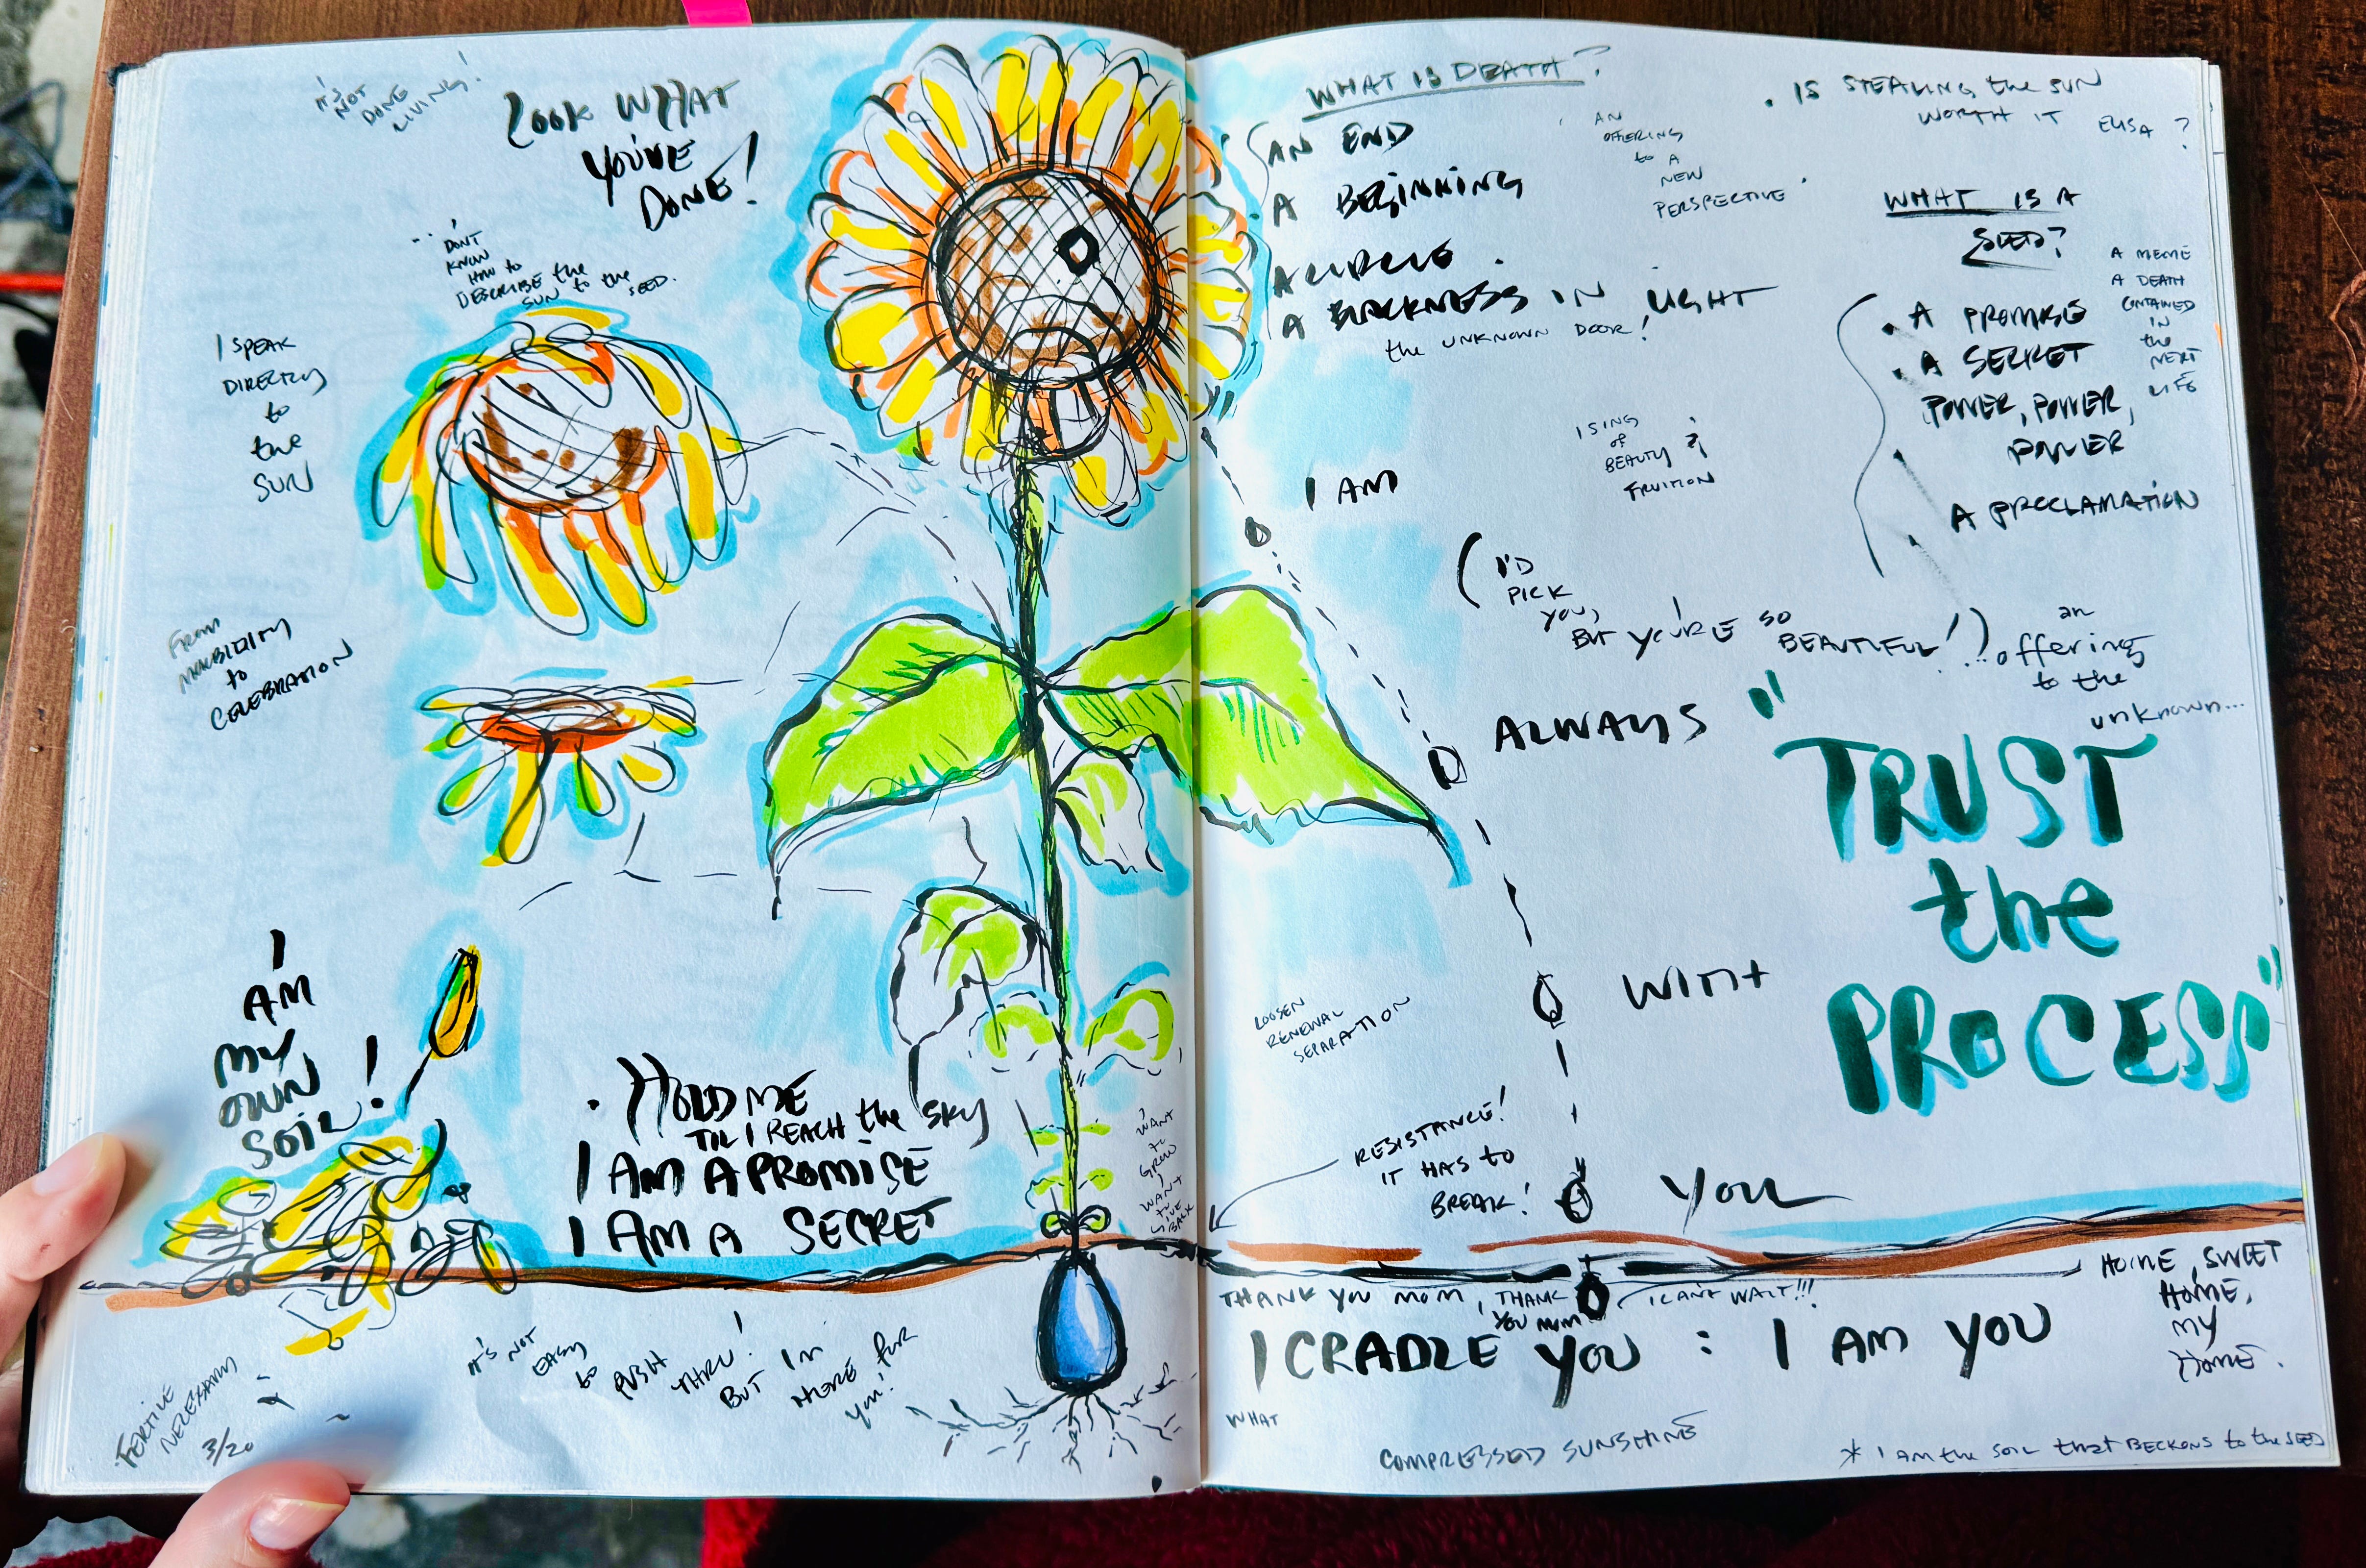 IT'S
NOT
DONE
LIVING!
LOOK WHAT
YOU'VE
DONE!
I
DON'T
KNOW
HOW to
DESCRIBE the
SUN to the
SEED.
I SPEAK
DIRECTLY
to
the
SUN
FROM
to
CELEBRATION
I
AM
MY
OWN
SOIL!
HOLD ME
TIL I REACH the SKY
I AM A PROMISE
I AM A SECRET
I
WANT
to
GROW
I
WANT
to
GIVE
BACK
IT'S NOT
EASY
to
PUSH
THRU!
BUT I'M
HERE FOR
YOU!
FERTILE
NECESSARY
3/20
WHAT IS DEATH?
AN END
A BEGINNING
A CIRCLE
A BLACKNESS IN LIGHT
the UNKNOWN DOOR!
AN
OFFERING
to A
NEW
PERSPECTIVE
. IS STEALING the SUN
WORTH IT ELISA?
WHAT IS A
SEED?
A MEME
A DEATH
CONTAINED
IN
the
NEXT
LIFE
. A PROMISE
. A SECRET
POWER, POWER,
POWER
A PROCLAMATION
I SING
of
BEAUTY &
FRUITION
I AM
(I'D
PICK
YOU,
BUT YOU'RE SO
BEAUTIFUL!)
an
offering
to the
unknown...
ALWAYS
"TRUST
the
PROCESS"
WITH
LOOSEN
RENEWAL
SEPARATION
RESISTANCE!
IT HAS to
BREAK!
YOU
THANK YOU MOM
I THANK
YOU MOM
I CAN'T WAIT!!!
HOME, SWEET
HOME,
MY
HOME.
I CRADLE YOU : I AM YOU
WHAT
COMPRESSED SUNSHINE
* I AM the SOIL that BECKONS to the SEED